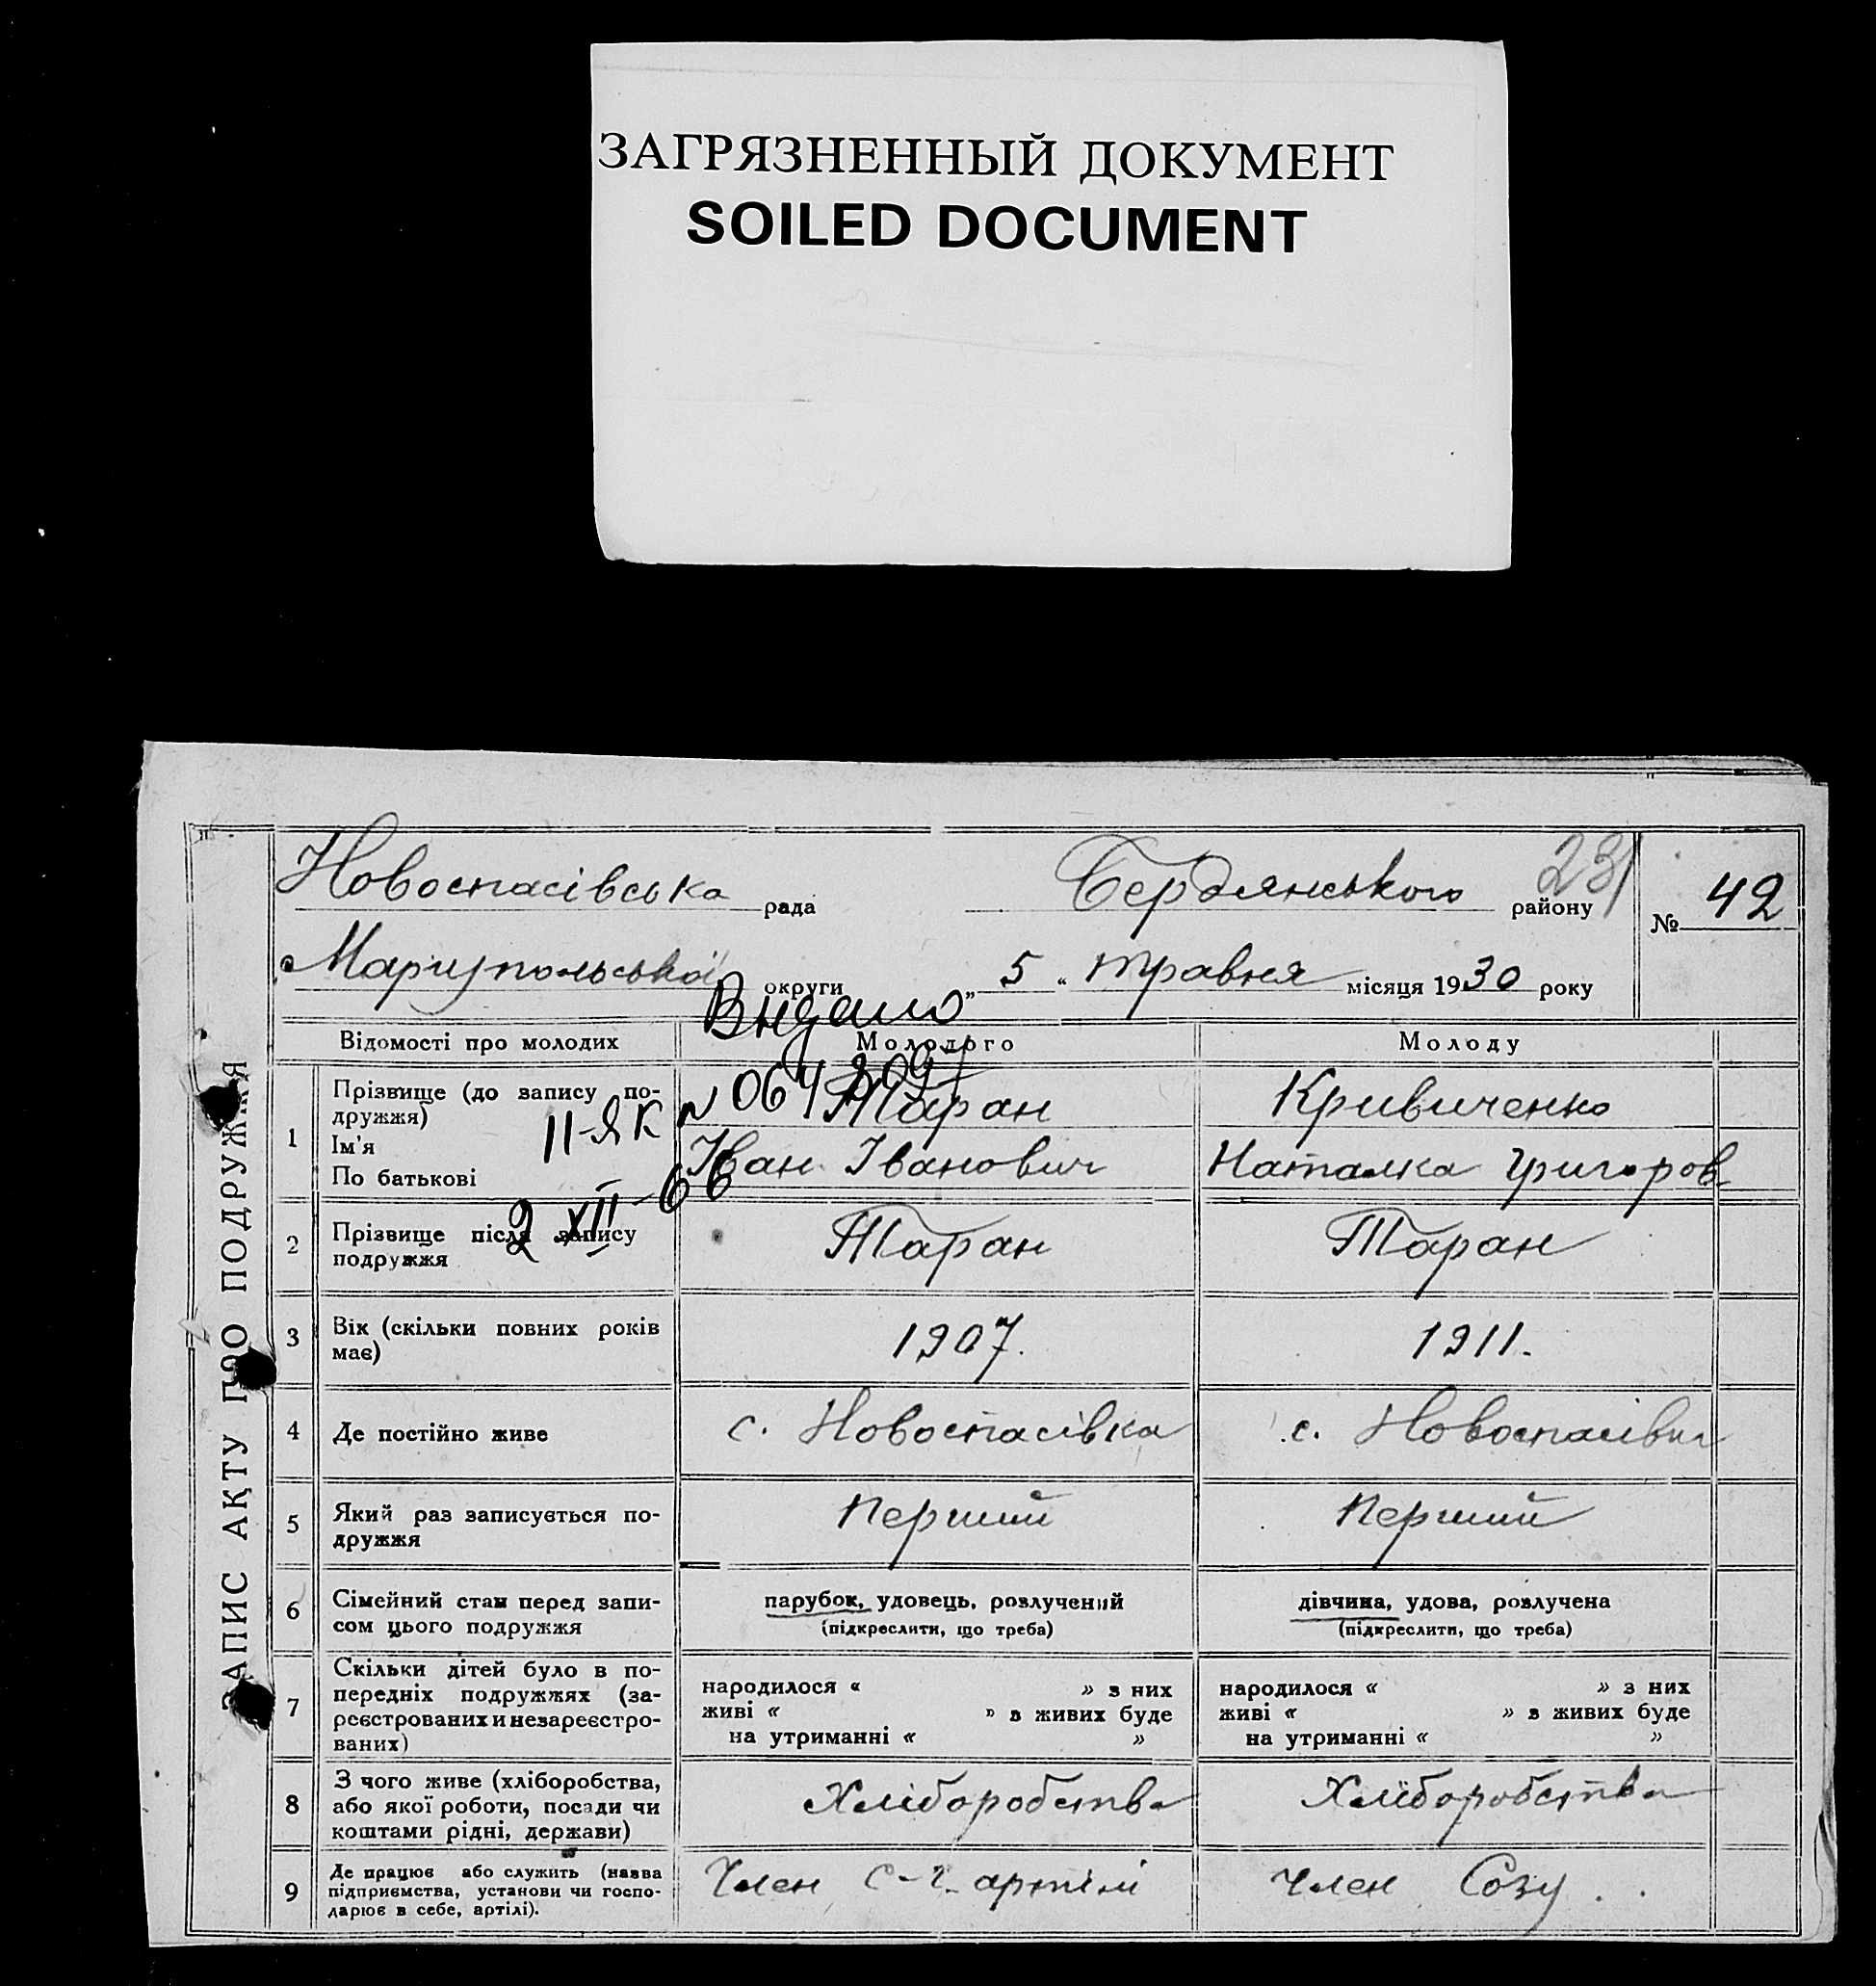 ЗАГРЯЗНЕННЫЙ ДОКУМЕНТ
SOILED DOCUMENT
ЗАПИС АКТУ ПРО ПОДРУЖЖЯ
Новоспасівська рада Бердянського району 231 № 42
Маріупольської округи „ 5 “ травня місяця 1930 року
Видано
Відомості про молодих Молодого Молоду
II-ЯК № 064
2 XII-66
1 Прізвище (до запису по-
дружжя) Таран Кривиченко
Ім'я
По батькові Іван Іванович Наталка Григоров
2 Прізвище після запису
подружжя Таран Таран
3 Вік (скільки повних років
має) 1907. 1911.
4 Де постійно живе с. Новоспасівка с. Новоспасівка
5 Який раз записується по-
дружжя Перший Перший
6 Сімейний стан перед запи-
сом цього подружжя парубок, удовець, розлучений дівчина, удова, розлучена
(підкреслити, що треба) (підкреслити, що треба)
7 Скільки дітей було в по-
передніх подружжях (за-
реєстрованих и незареєстро-
ваних)
народилося « » з них народилося « » з них
живі « » в живих буде живі « » в живих буде
на утриманні « » на утриманні « »
8 З чого живе (хліборобства,
або якої роботи, посади чи
коштами рідні, держави) Хліборобства Хліборобства
9 Де працює або служить (назва
підприємства, установи чи госпо-
дарює в себе, артілі). Член с-г. артілі Член Созу .